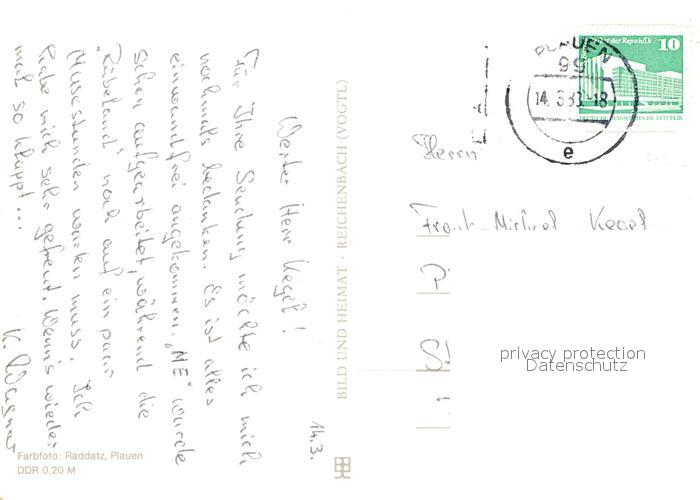 14.3.
Werter Herr Kegel!
Für Ihre Sendung möchte ich mich
nochmals bedanken. Es ist alles
einwandfrei angekommen. "ME" wurde
schon aufgearbeitet, während die
"Rübeland" noch auf ein paar
Musestunden warten muss. Ich
habe mich sehr gefreut. Wenn's wieder
mal so klappt...
K. Wagner
Farbfoto: Raddatz, Plauen
DDR 0,20 M
BILD UND HEIMAT · REICHENBACH (VOGTL)
PLAUEN
99
14.3.83-18
e
der Republik 10
DEUTSCHE DEMOKRATISCHE REPUBLIK
Herrn
Frank-Michael Kegel
privacy protection
Datenschutz